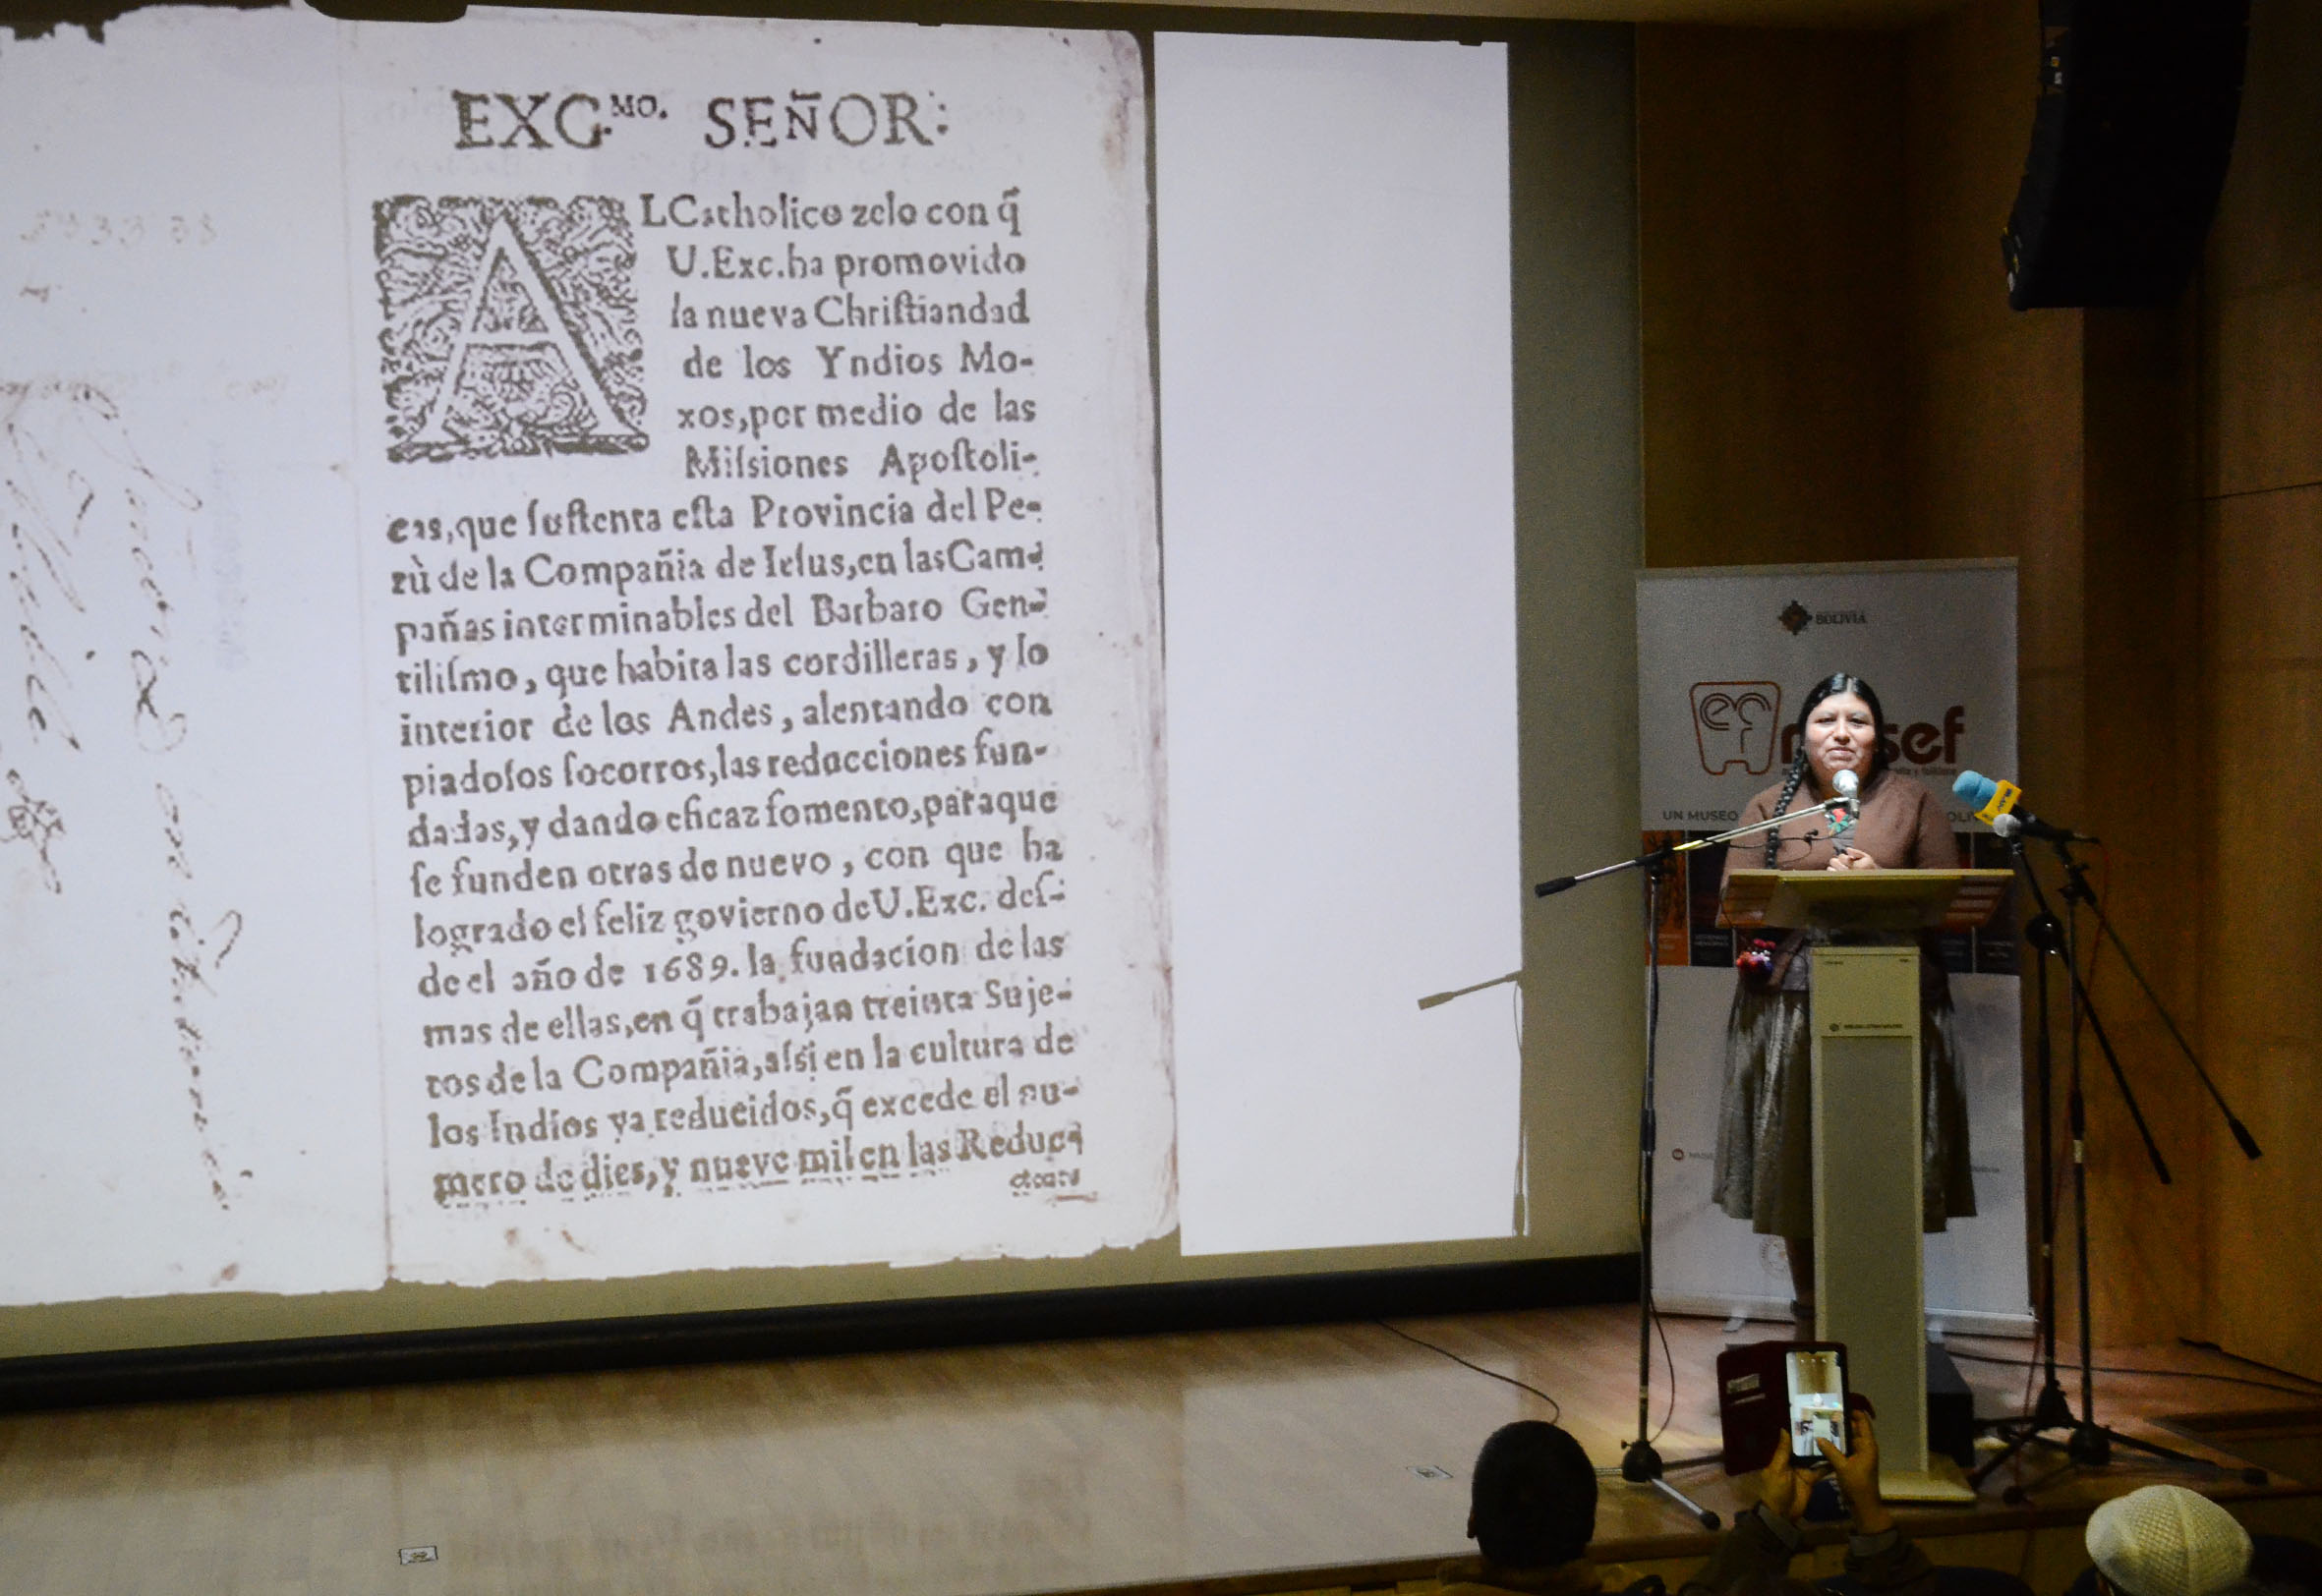 EXC.MO. SEÑOR:
AL Catholico zelo con q̃
U.Exc.ha promovido
la nueva Chriſtiandad
de los Yndios Mo-
xos,por medio de las
Miſsiones Apoſtoli-
cas,que ſuſtenta eſta Provincia del Pe-
rù de la Compañia de Ieſus,en las Cam-
pañas interminables del Barbaro Gen-
tiliſmo, que habita las cordilleras, y lo
interior de los Andes, alentando con
piadoſos ſocorros,las reducciones fun-
dadas,y dando eficaz fomento,para que
ſe funden otras de nuevo, con que ha
logrado el feliz govierno de U.Exc. deſ-
de el año de 1689. la fundacion de las
mas de ellas,en q̃ trabajan treinta Suje-
tos de la Compañia,aſsi en la cultura de
los Indios ya reducidos,q̃ excede el nu-
mero de dies,y nueve mil en las Reduc-
BOLIVIA
musef
UN MUSEO